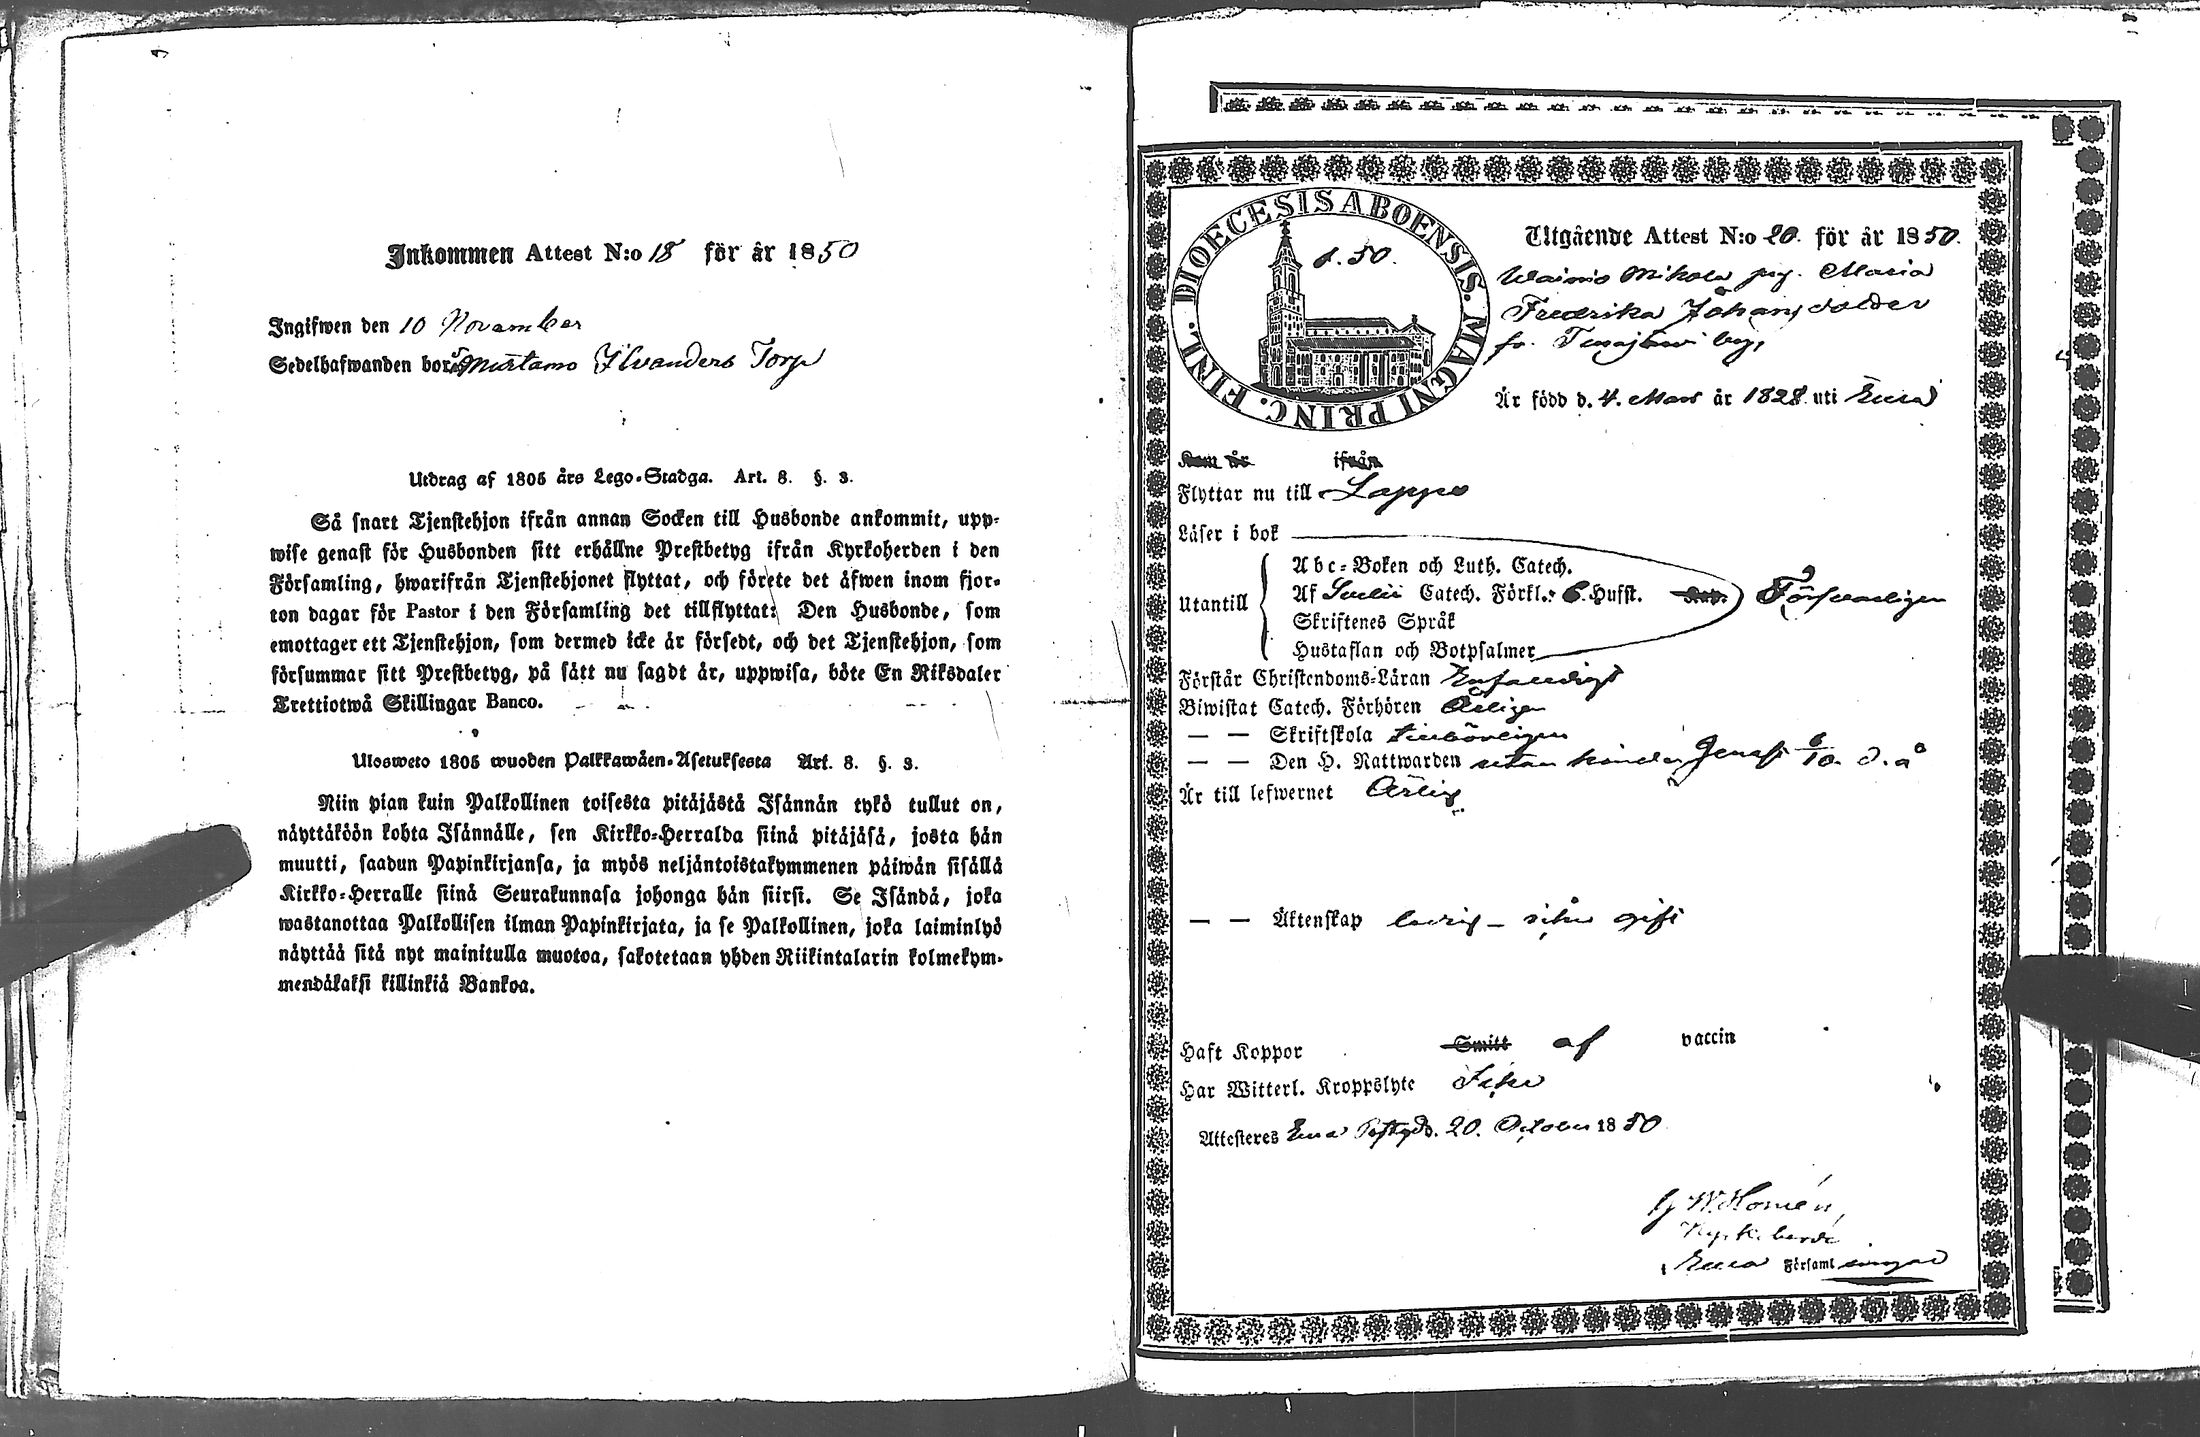 Inkommen Attest N:o 18 för år 1850
Ingifwen den 10 November
Sedelhafwanden bor på Mustamo Ilvanders Torp
Utdrag af 1805 års Lego-Stadga. Art. 8. §. 3.
Så snart Tjenstehjon ifrån annan Socken till Husbonde ankommit, upp-
wise genast för Husbonden sitt erhållne Prestbetyg ifrån Kyrkoherden i den
Församling, hwarifrån Tjenstehjonet flyttat, och förete det äfwen inom fjor-
ton dagar för Pastor i den Församling det tillflyttat: Den Husbonde, som
emottager ett Tjenstehjon, som dermed icke är försedt, och det Tjenstehjon, som
försummar sitt Prestbetyg, på sätt nu sagdt är, uppwisa, böte En Riksdaler
Trettiotwå Skillingar Banco.
Ulosweto 1805 wuoden Palkkawäen-Asetuksesta Art. 8. §. 3.
Niin pian kuin Palkollinen toisesta pitäjästä Isännän tykö tullut on,
näyttäköön kohta Isännälle, sen Kirkko-Herralda siinä pitäjäsä, josta hän
muutti, saadun Papinkirjansa, ja myös neljäntoistakymmenen päiwän sisällä
Kirkko-Herralle siinä Seurakunnasa johonga hän siirsi. Se Isändä, joka
wastanottaa Palkollisen ilman Papinkirjata, ja se Palkollinen, joka laiminlyö
näyttää sitä nyt mainitulla muotoa, sakotetaan yhden Riikintalarin kolmekym-
mendäkaksi killinkiä Bankoa.
DIOECESIS ABOENSIS. MAGNI PRINC. FINL.
d. 50.
Utgående Attest N:o 20. för år 1850.
Wainio Mikola pig. Maria
Fredrika Johansdotter
fr. by
Är född d. 4. Mars år 1828 uti Eura
Kom år ifrån
Flyttar nu till Lappo
Läser i bok
Abc-Boken och Luth. Catech.
Utantill Af Catech. Förkl. 6. Hufst. Kap. Försvarligen
Skriftenes Språk
Hustaflan och Botpsalmer
Förstår Christendoms-Läran Enfaldigt
Biwistat Catech. Förhören Årligen
— — Skriftskola tillbörligen
— — Den H. Nattwarden utan hinder Genast 6/10. d. å
Är till lefwernet Ärlig
— — Äktenskap ledig – icke gift
Haft Koppor Smitt af vaccin
Har Witterl. Kroppslyte Icke
Attesteres Eura Prestgård. 20. October 1850
G W Homén,
Kyrkoherde
Eura Församlingar